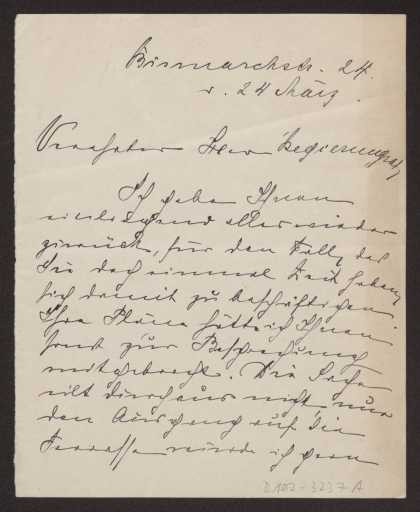 Bismarckstr. 24.
d. 24 März.
Verehrter Herr Regierungsrat,
Ich gebe Ihnen
einliegend alles wieder
zurück, für den Fall, daß
Sie doch einmal Zeit haben,
sich damit zu beschäftigen.
Ihre Pläne hätte ich Ihnen
sonst zur Besprechung
mitgebracht. Die Sache
eilt durchaus nicht, nur
den Ausgang auf die
Terrasse würde ich gern
D 102-3237 A